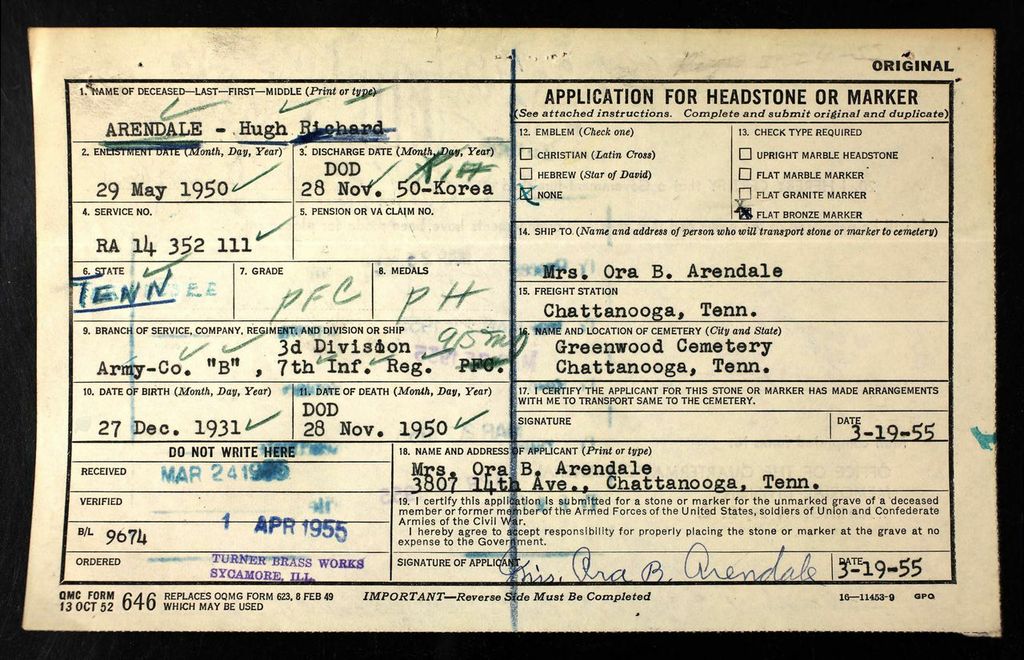 ORIGINAL
1. NAME OF DECEASED—LAST—FIRST—MIDDLE (Print or type)
ARENDALE - Hugh Richard
2. ENLISTMENT DATE (Month, Day, Year)
29 May 1950
3. DISCHARGE DATE (Month, Day, Year)
DOD
28 Nov. 50-Korea
4. SERVICE NO.
RA 14 352 111
5. PENSION OR VA CLAIM NO.
6. STATE
TENN
7. GRADE
PFC
8. MEDALS
PH
9. BRANCH OF SERVICE, COMPANY, REGIMENT, AND DIVISION OR SHIP
3d Division
Army-Co. "B", 7th Inf. Reg. PFC.
10. DATE OF BIRTH (Month, Day, Year)
27 Dec. 1931
11. DATE OF DEATH (Month, Day, Year)
DOD
28 Nov. 1950
DO NOT WRITE HERE
RECEIVED
MAR 24 1955
VERIFIED
1 APR 1955
B/L 9674
ORDERED
TURNER BRASS WORKS
SYCAMORE, ILL.
APPLICATION FOR HEADSTONE OR MARKER
(See attached instructions. Complete and submit original and duplicate)
12. EMBLEM (Check one)
CHRISTIAN (Latin Cross)
HEBREW (Star of David)
NONE
13. CHECK TYPE REQUIRED
UPRIGHT MARBLE HEADSTONE
FLAT MARBLE MARKER
FLAT GRANITE MARKER
FLAT BRONZE MARKER
14. SHIP TO (Name and address of person who will transport stone or marker to cemetery)
Mrs. Ora B. Arendale
15. FREIGHT STATION
Chattanooga, Tenn.
16. NAME AND LOCATION OF CEMETERY (City and State)
Greenwood Cemetery
Chattanooga, Tenn.
17. I CERTIFY THE APPLICANT FOR THIS STONE OR MARKER HAS MADE ARRANGEMENTS
WITH ME TO TRANSPORT SAME TO THE CEMETERY.
SIGNATURE
DATE
3-19-55
18. NAME AND ADDRESS OF APPLICANT (Print or type)
Mrs. Ora B. Arendale
3807 14th Ave., Chattanooga, Tenn.
19. I certify this application is submitted for a stone or marker for the unmarked grave of a deceased
member or former member of the United Forces of the United States, soldiers of Union and Confederate
Armies of the Civil War.
I hereby agree to accept responsibility for properly placing the stone or marker at the grave at no
expense to the Government.
SIGNATURE OF APPLICANT
Mrs. Ora B. Arendale
DATE
3-19-55
QMC FORM
13 OCT 52 646 REPLACES OQMG FORM 623, 8 FEB 49
WHICH MAY BE USED
IMPORTANT—Reverse Side Must Be Completed
16—11453-9 GPO